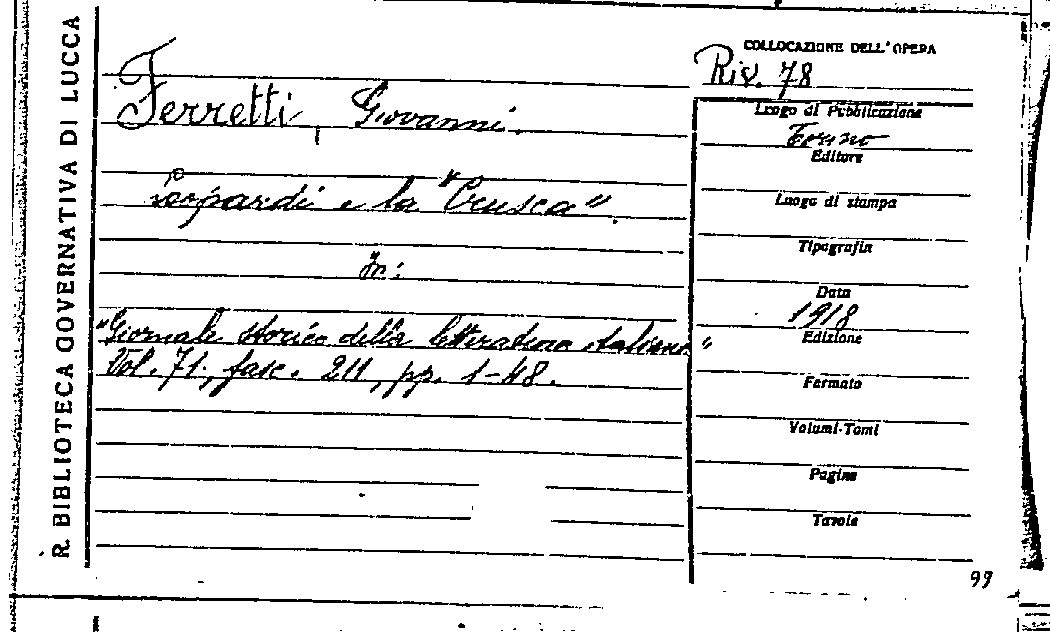 R. BIBLIOTECA GOVERNATIVA DI LUCCA
Ferretti, Giovanni.
Leopardi e la "Crusca".
In:
"Giornale storico della letteratura italiana"
Vol. 71, fasc. 211, pp. 1-48.
COLLOCAZIONE DELL'OPERA
Riv. 78
Luogo di Pubblicazione
Torino
Editore
Luogo di stampa
Tipografia
Data
1918
Edizione
Formato
Volumi-Tomi
Pagine
Tavole
99